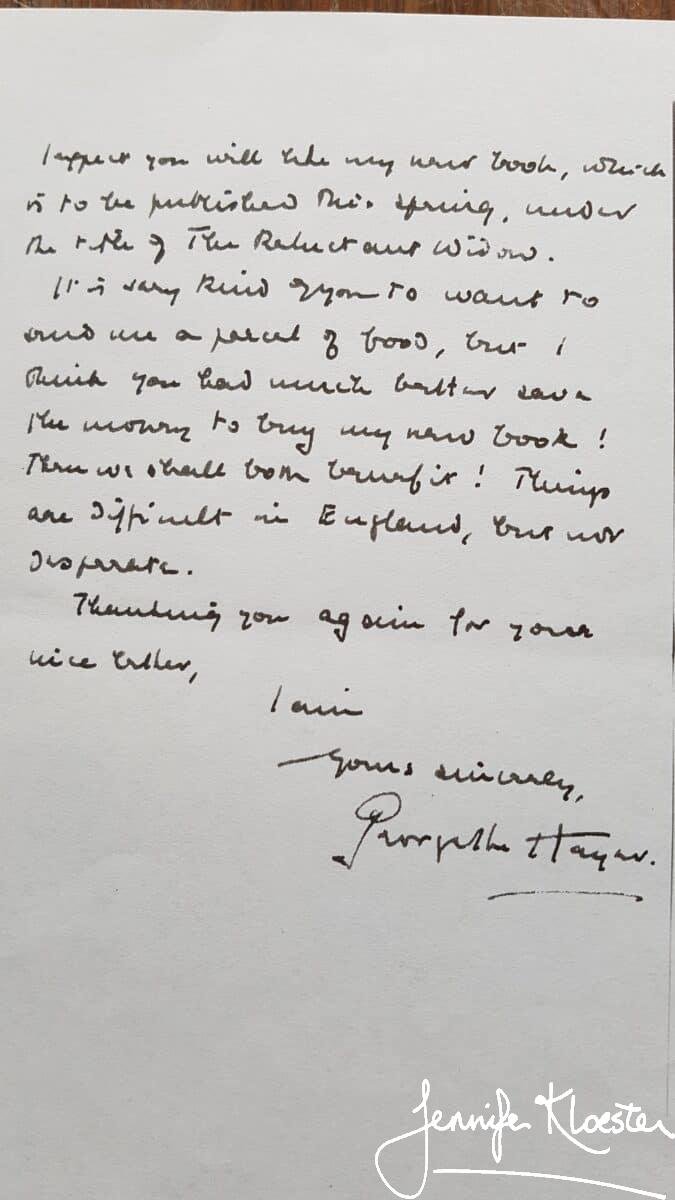 I expect you will like my new book, which
is to be published this spring, under
the title of The Reluctant Widow.
It is very kind of you to want to
send me a parcel of food, but I
think you had much better save
the money to buy my new book!
Then we shall both benefit! Things
are difficult in England, but not
desperate.
Thanking you again for your
nice letter,
I am
Yours sincerely,
Georgette Heyer.
Jennifer Kloester